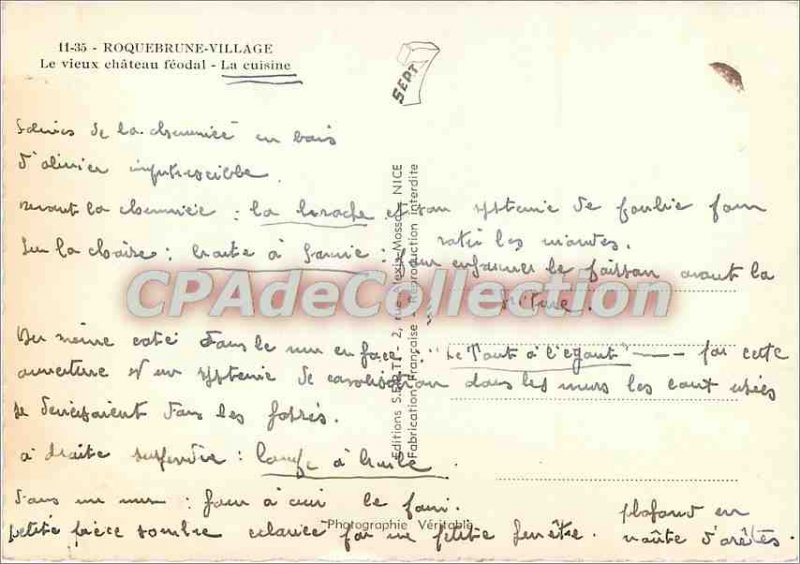 11-35 - ROQUEBRUNE-VILLAGE
Le vieux château féodal - La cuisine
SEPT
Solives de la cheminée en bois
d'olivier imputrescible.
devant la cheminée : la broche et son systeme de poulie pour
rotir les viandes.
Sur la chaise : boite à : pour enfermer le faisson avant la
Du même coté dans le mur en face : "Le Tout à l'égout" — par cette
ouverture et un systeme de canalisation dans les murs les eaux usées
se deversaient dans les fossés.
à droite suspendue : lampe à huile.
dans un mur : four à cuir le pain.
petite pièce sombre eclairée par une petite fenêtre.
plafond en
voûte d'arêtes.
Editions S.E.P.T. - 2, rue Alexis-Mossa, NICE
Fabrication Française - Reproduction interdite
Photographie Véritable
CPAdeCollection